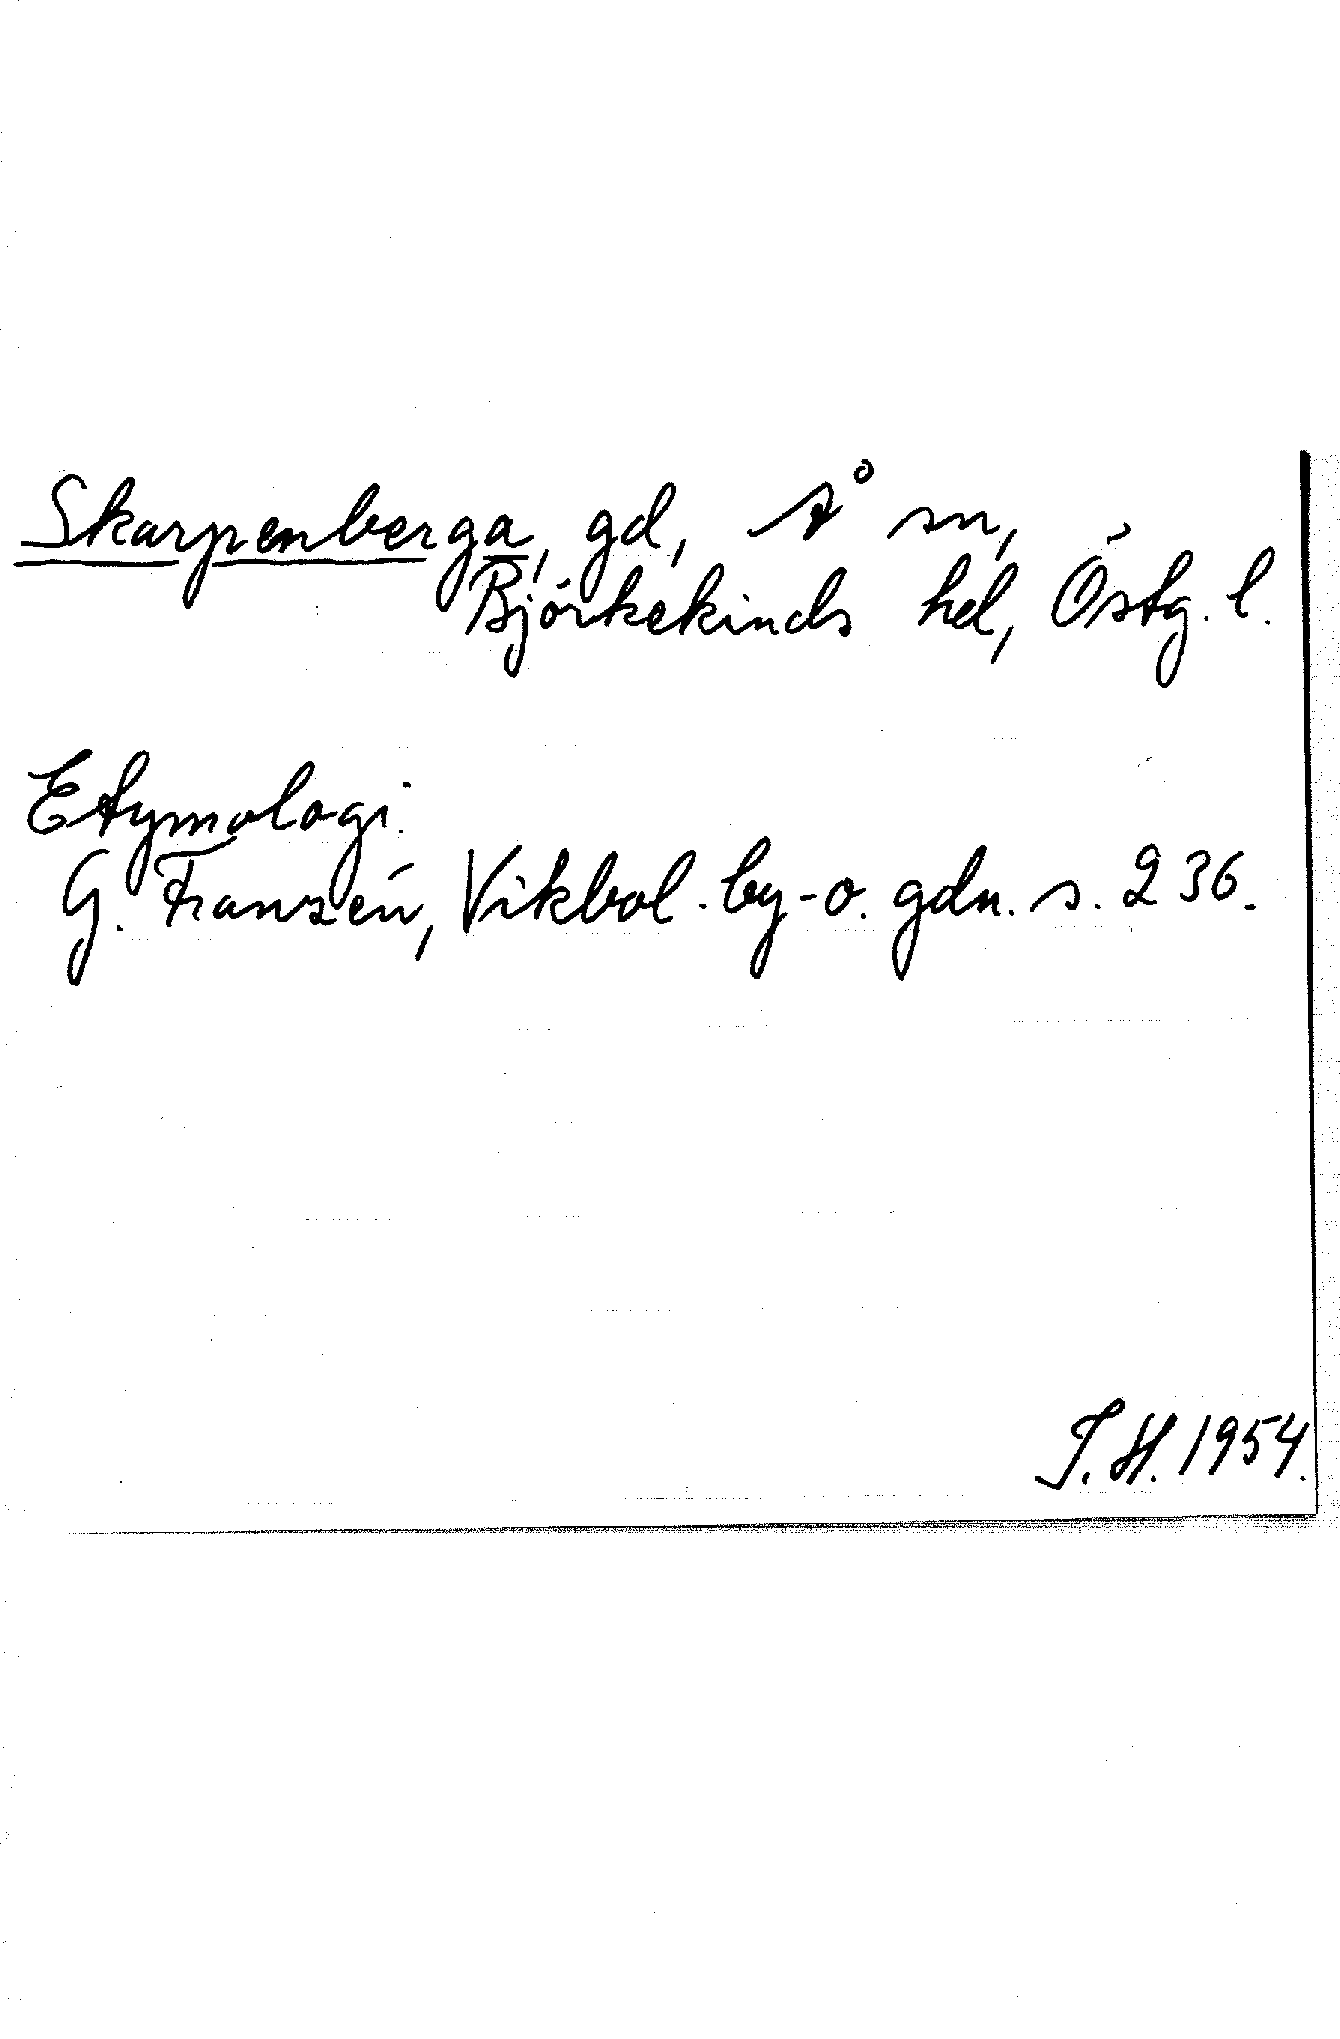 Skarpenberga, gd, Å sn,
Björkekinds hd, Östg. l.
Etymologi.
G. Franzén, Vikbol. by- o. gdn. s. 236.
T. H. 1954.